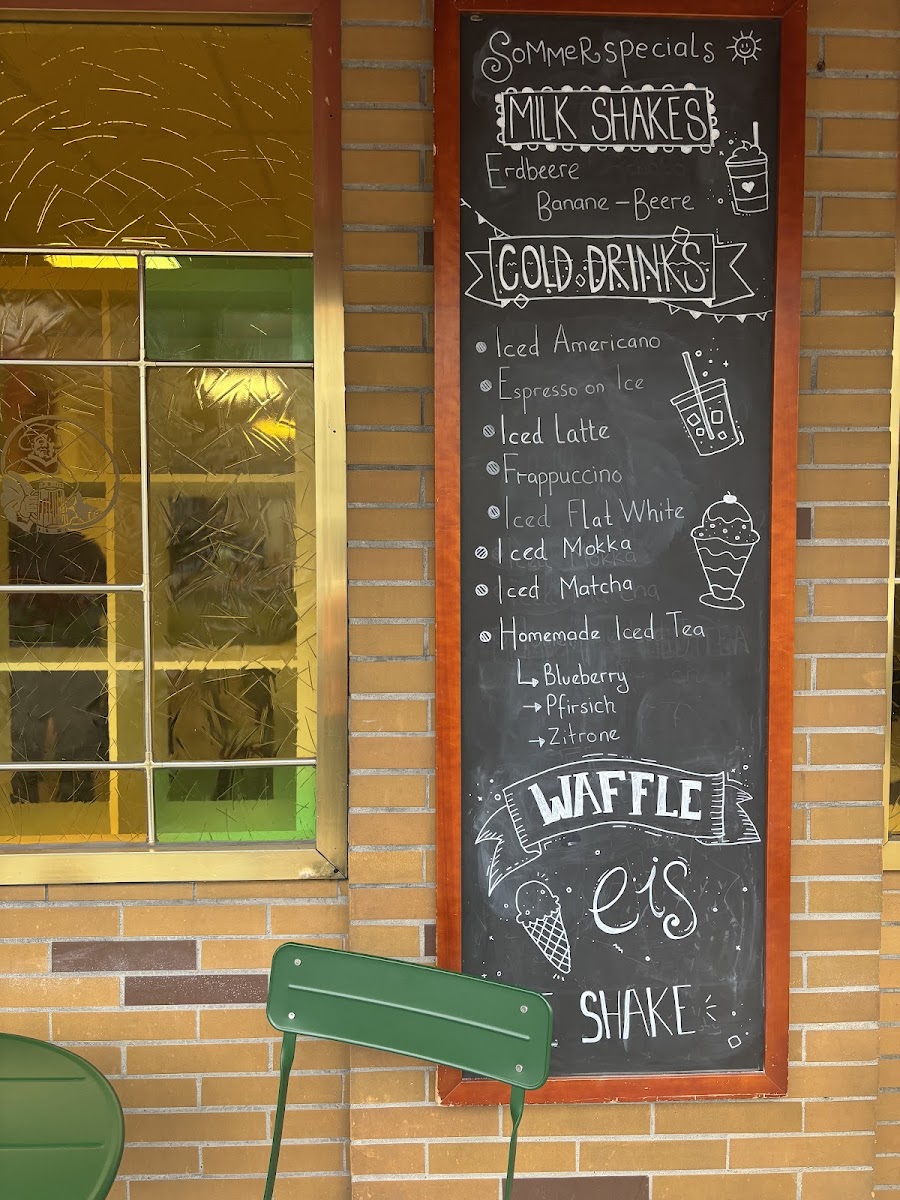 Sommerspecials
MILK SHAKES
Erdbeere
Banane-Beere
COLD DRINKS
Iced Americano
Espresso on Ice
Iced Latte
Frappuccino
Iced Flat White
Iced Mokka
Iced Matcha
Homemade Iced Tea
Blueberry
Pfirsich
Zitrone
WAFFLE
eis
SHAKE